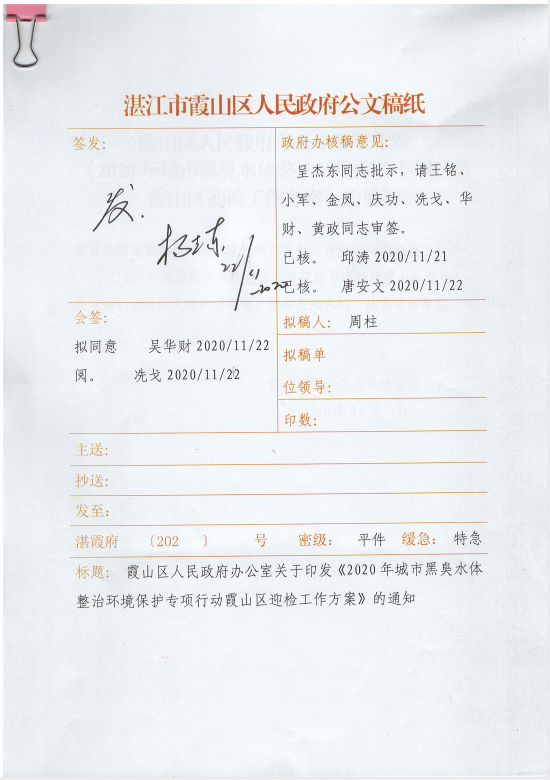 湛江市霞山区人民政府公文稿纸
签发：
发.
22/11
2020
政府办核稿意见：
呈杰东同志批示，请王铭、
小军、金凤、庆功、冼戈、华
财、黄政同志审签。
已核。 邱涛 2020/11/21
已核。 唐安文 2020/11/22
会签：
拟同意 吴华财 2020/11/22
阅。 冼戈 2020/11/22
拟稿人： 周柱
拟稿单
位领导：
印数：
主送：
抄送：
发至：
湛霞府 〔202 〕 号 密级： 平件 缓急： 特急
标题： 霞山区人民政府办公室关于印发《2020 年城市黑臭水体
整治环境保护专项行动霞山区迎检工作方案》的通知